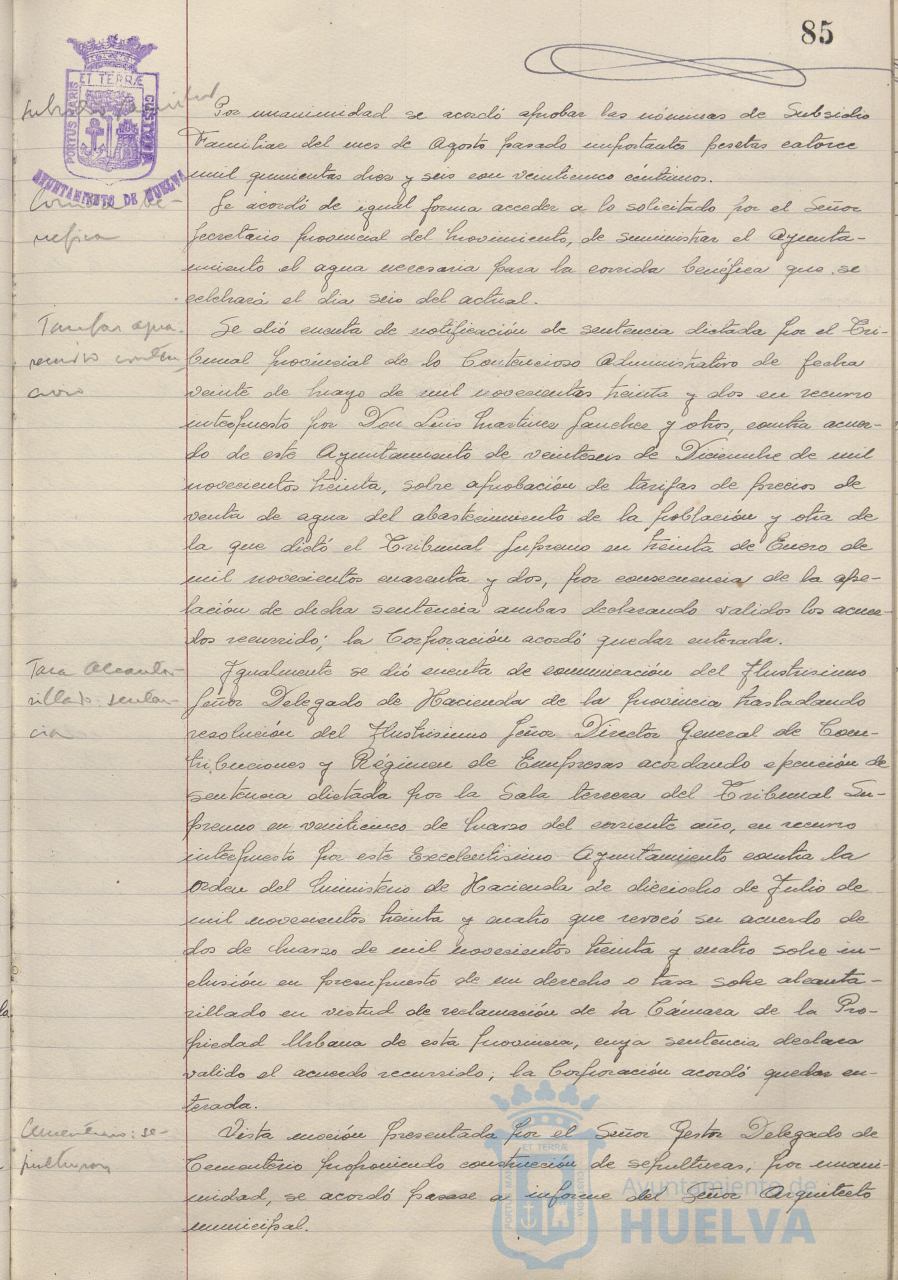 85
ET TERRÆ
PORTUS MARIS
CUSTODIA
AYUNTAMIENTO DE HUELVA
Por unanimidad se acordó aprobar las nóminas de Subsidio
Familiar del mes de Agosto pasado importantes pesetas catorce
mil quinientas diez y seis con veinticinco céntimos.
be-
néfica
Se acordó de igual forma acceder a lo solicitado por el Señor
Secretario Provincial del Movimiento, de suministrar el Ayunta-
miento el agua necesaria para la corrida benéfica que se
celebrará el dia seis del actual.
Tarifas agua.
recurso conten
cioso
Se dió cuenta de notificación de sentencia dictada por el Tri-
bunal Provincial de lo Contencioso Administrativo de fecha
veinte de Mayo de mil novecientos treinta y dos en recurso
interpuesto por Don Luis Martinez Sanchez y otros, contra acuer-
do de este Ayuntamiento de veinteseis de Diciembre de mil
novecientos treinta, sobre aprobación de tarifas de precios de
venta de agua del abastecimiento de la población y otra de
la que dictó el Tribunal Supremo en treinta de Enero de
mil novecientos cuarenta y dos, por consecuencia de la ape-
lación de dicha sentencia ambas declarando validos los acuer-
dos recurrido; la Corporación acordó quedar enterada.
Tasa Alcanta-
rillado: senten-
cia
Igualmente se dió cuenta de comunicación del Ilustrisimo
Señor Delegado de Hacienda de la provincia trasladando
resolución del Ilustrisimo Señor Director General de Con-
tribuciones y Régimen de Empresas acordando ejecución de
sentencia dictada por la Sala tercera del Tribunal Su-
premo en veinticinco de Marzo del corriente año, en recurso
interpuesto por este Excelentisimo Ayuntamiento contra la
Orden del Ministerio de Hacienda de dieciocho de Julio de
mil novecientos treinta y cuatro que revocó su acuerdo de
dos de Marzo de mil novecientos treinta y cuatro sobre in-
clusión en presupuesto de un derecho o tasa sobre alcanta-
rillado en virtud de reclamación de la Cámara de la Pro-
piedad Urbana de esta provincia, cuya sentencia declara
valido el acuerdo recurrido; la Corporación acordó quedar en-
terada.
Cementerio: se-
pulturas
Vista moción presentada por el Señor Gestor Delegado de
Cementerio proponiendo construcción de sepulturas, por unani-
midad, se acordó pasase a informe del Señor Arquitecto
municipal.
Ayuntamiento de
HUELVA